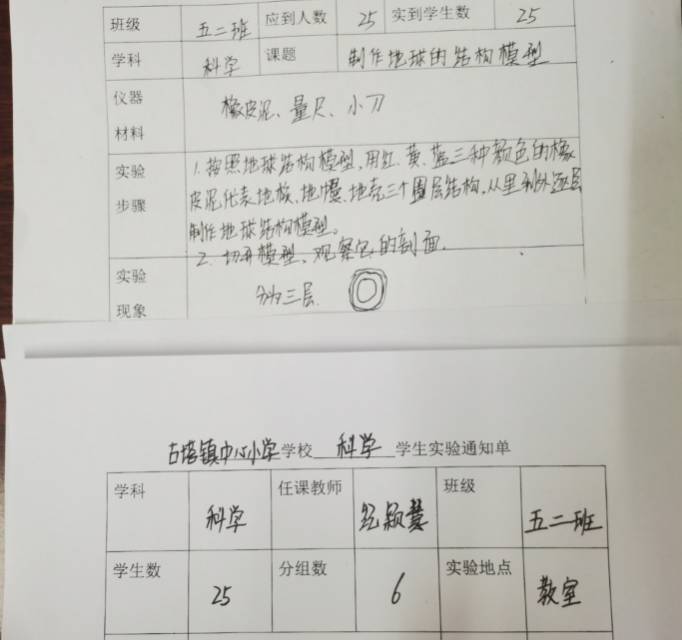 班级 五二班 应到人数 25 实到学生数 25
学科 科学 课题 制作地球的结构模型
仪器 橡皮泥、量尺、小刀
材料
实验 1. 按照地球结构模型,用红、黄、蓝三种颜色的橡
步骤 皮泥代表地核、地幔、地壳三个圈层结构,从里到外逐层
制作地球结构模型。
2. 切开模型、观察它的剖面.
实验 分为三层.
现象
古塔镇中心小学学校 科学 学生实验通知单
学科 科学 任课教师 颖慧 班级 五二班
学生数 25 分组数 6 实验地点 教室